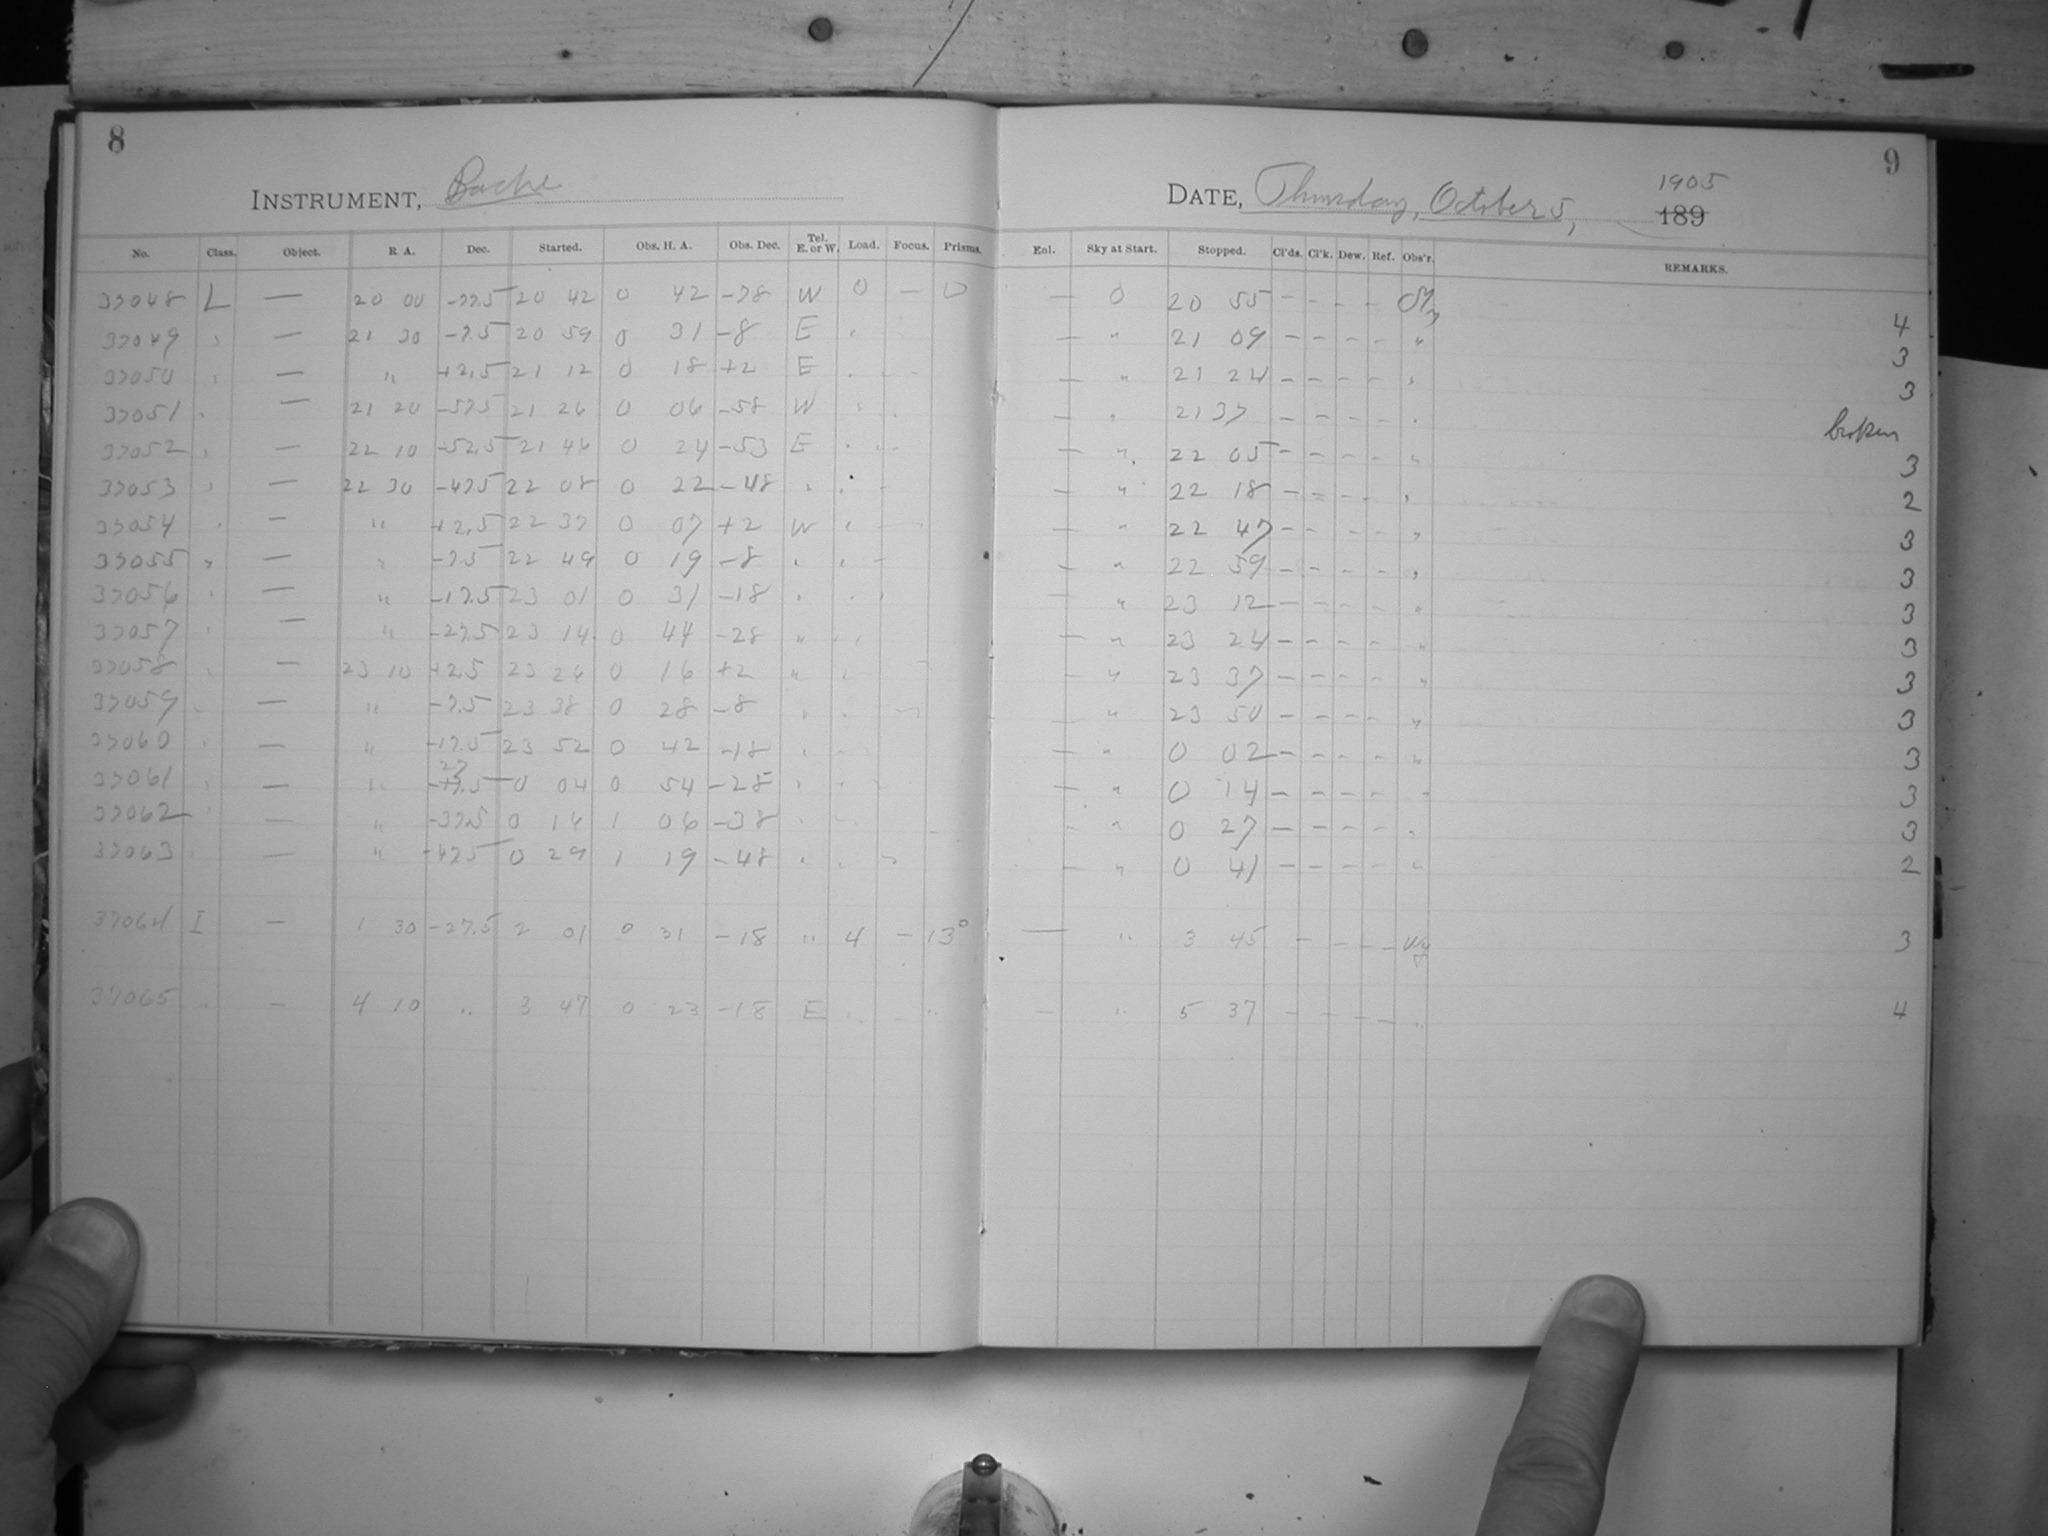 8
9
INSTRUMENT, Bache
DATE, Thursday, October 5, 1905 189
No. Class. Object. R. A. Dec. Started. Obs. H. A. Obs. Dec. Tel. E. or W. Load. Focus. Prisms. Enl. Sky at Start. Stopped. Cl'ds. Cl'k. Dew. Ref. Obs'r. REMARKS.
37048 L — 20 00 -77.5 20 42 0 42 -78 W 0 — 0 — 0 20 55 - - - - 4
37049 — 21 30 -7.5 20 59 0 31 -8 E — " 21 09 - - - - " 3
37050 — " +2.5 21 12 0 18 +2 E — " 21 24 - - - - " 3
37051 — 21 20 -57.5 21 26 0 06 -58 W — " 21 37 - - - - " broken
37052 — 22 10 -52.5 21 46 0 24 -53 E — " 22 05 - - - - " 3
37053 — 22 30 -47.5 22 08 0 22 -48 " — " 22 18 - - - - " 2
37054 — " +2.5 22 37 0 07 +2 W — " 22 47 - - - - " 3
37055 " — " -7.5 22 49 0 19 -8 " — " 22 59 - - - - " 3
37056 — " -17.5 23 01 0 31 -18 " — " 23 12 - - - - " 3
37057 — " -27.5 23 14 0 44 -28 " — " 23 24 - - - - " 3
37058 — 23 10 +2.5 23 26 0 16 +2 " — " 23 37 - - - - " 3
37059 — " -7.5 23 38 0 28 -8 " — " 23 50 - - - - " 3
37060 — " -17.5 23 52 0 42 -18 " — " 0 02 - - - - " 3
37061 — " -27.5 0 04 0 54 -28 " — " 0 14 - - - - " 3
37062 — " -37.5 0 16 1 06 -38 " — " 0 27 - - - - " 3
37063 — " -47.5 0 29 1 19 -48 " — " 0 41 - - - - " 2
37064 I — 1 30 -27.5 2 01 0 31 -18 " 4 — 13° — " 3 45 - - - - 3
37065 " — 4 10 " 3 47 0 23 -18 E " - " — " 5 37 - - - - " 4